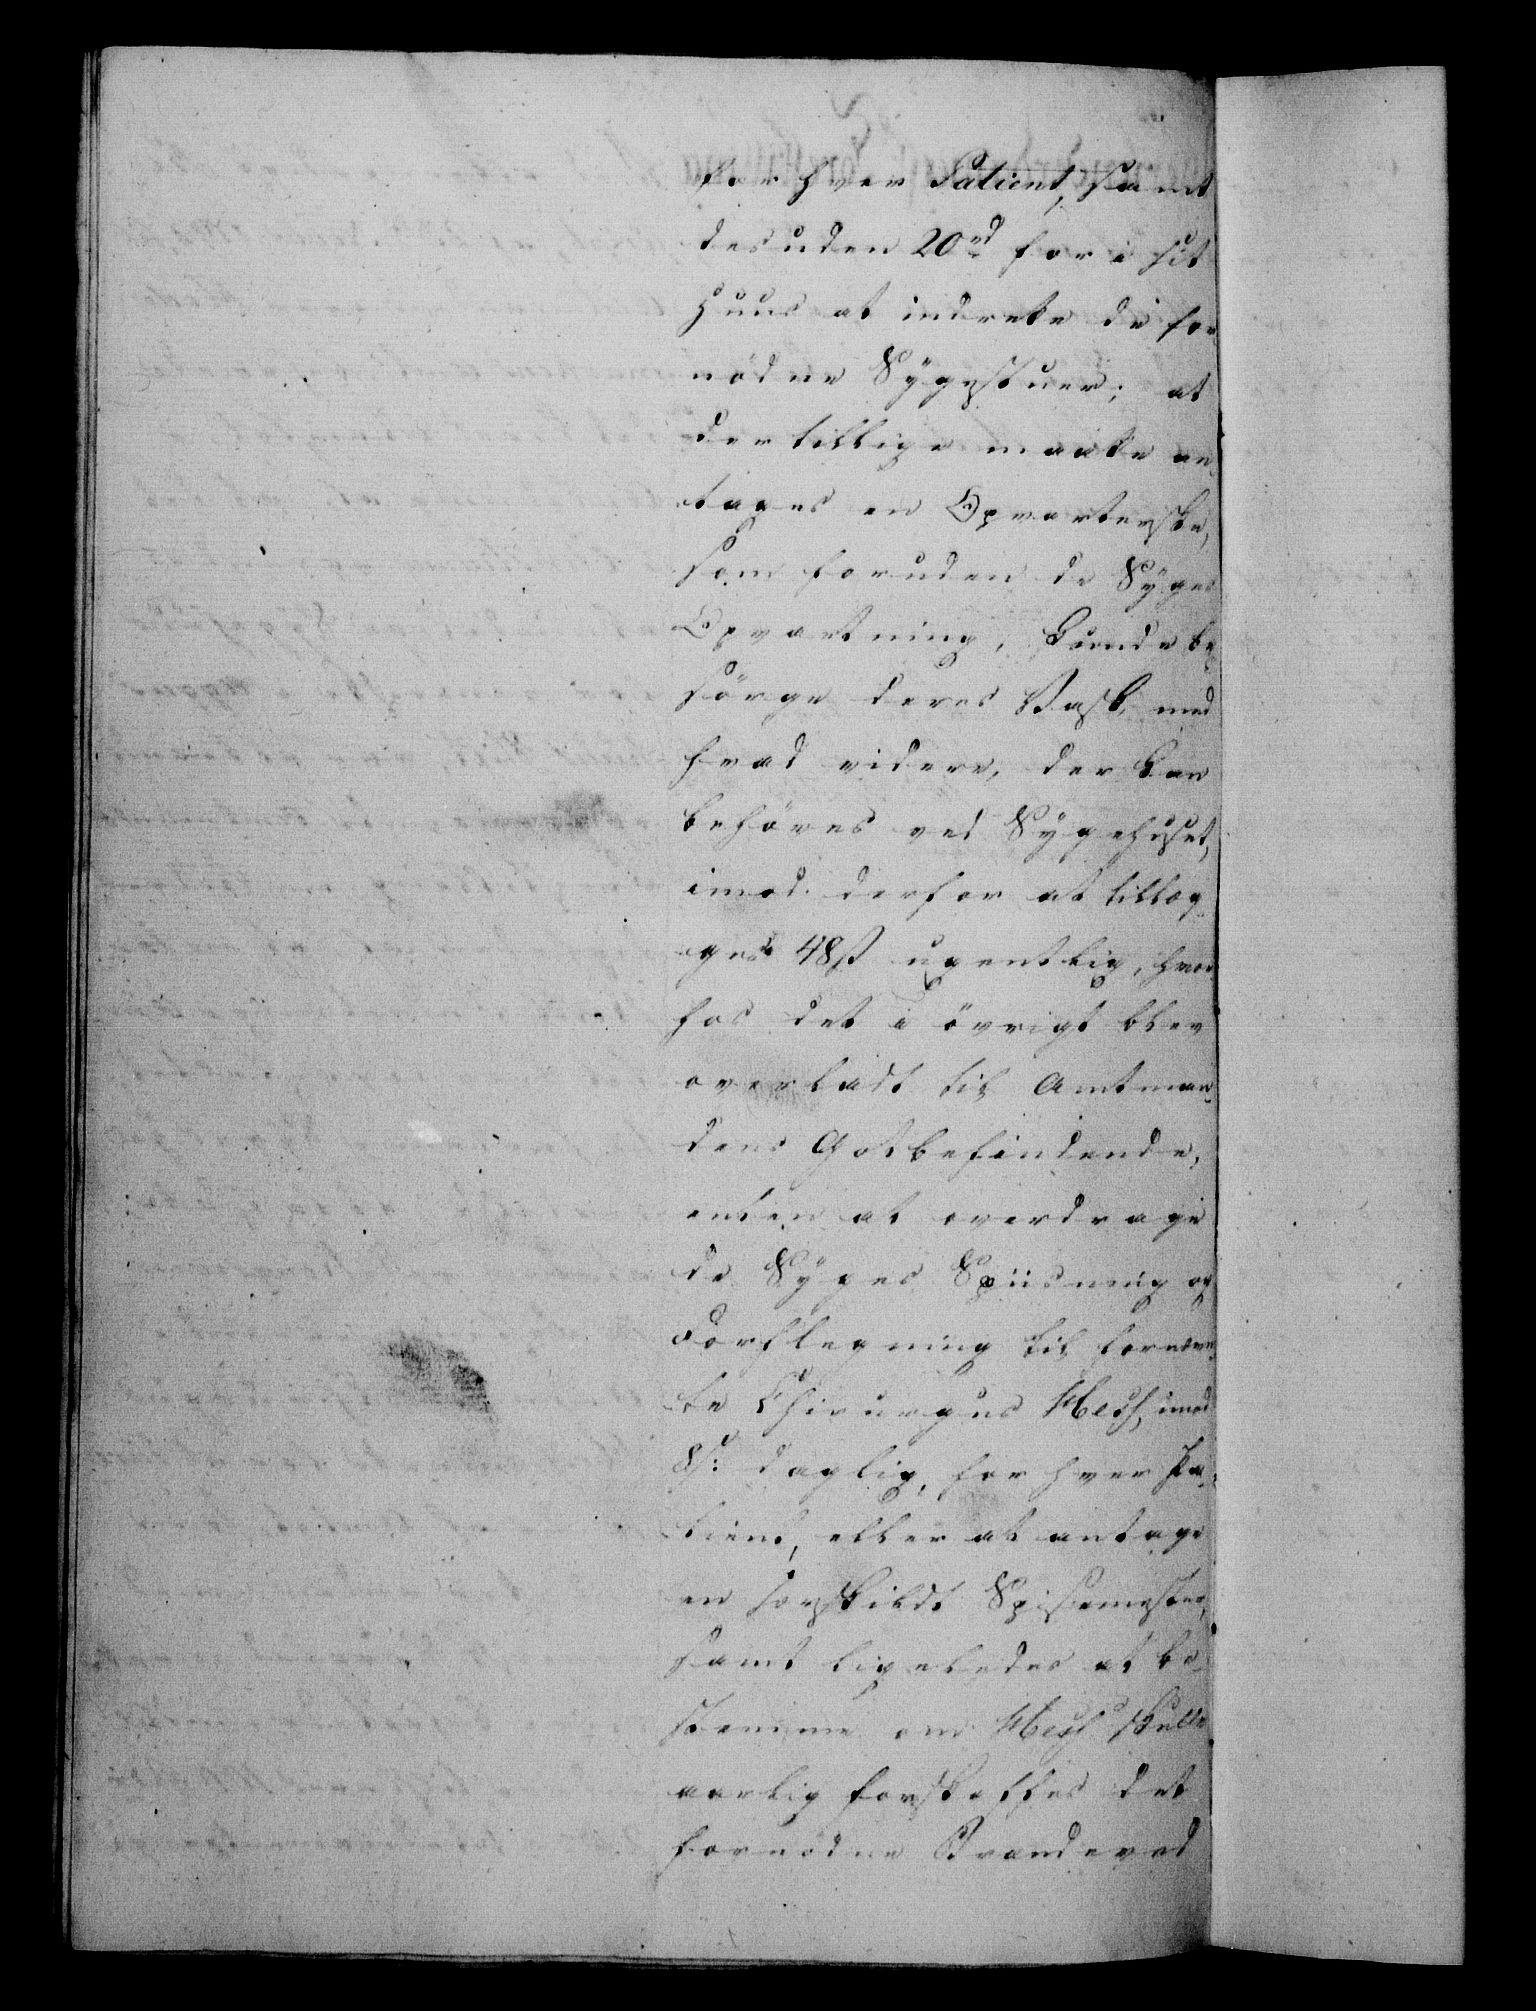 for hver Patient, samt
desuden 20rd for i sit
Huus at indrette de for
nödne Sÿgestuer; at
der tillige maatte an-
tages en Opvarterske,
som foruden de Sÿges
Opvartning, kunde be-
sörge deres Vask, med
hvad videre, der kan
behöves ved Sÿgehuset,
imod derfor at tillæg-
ges 48ß ugentlig, hvor
hos det i övrigt blev
overladt til Amtman-
dens Gotbefindende,
enten at overdrage
de Sÿges Spiisning og
Forflegning til fornævn-
te Chirurgus Hech, imod
8ß: daglig, for hver Pa-
tient, eller at antage
en særskildt Spisemester,
samt ligeledes at be-
stemme om Hech skulle
aarlig forskaffes det
fornödne Brændeved